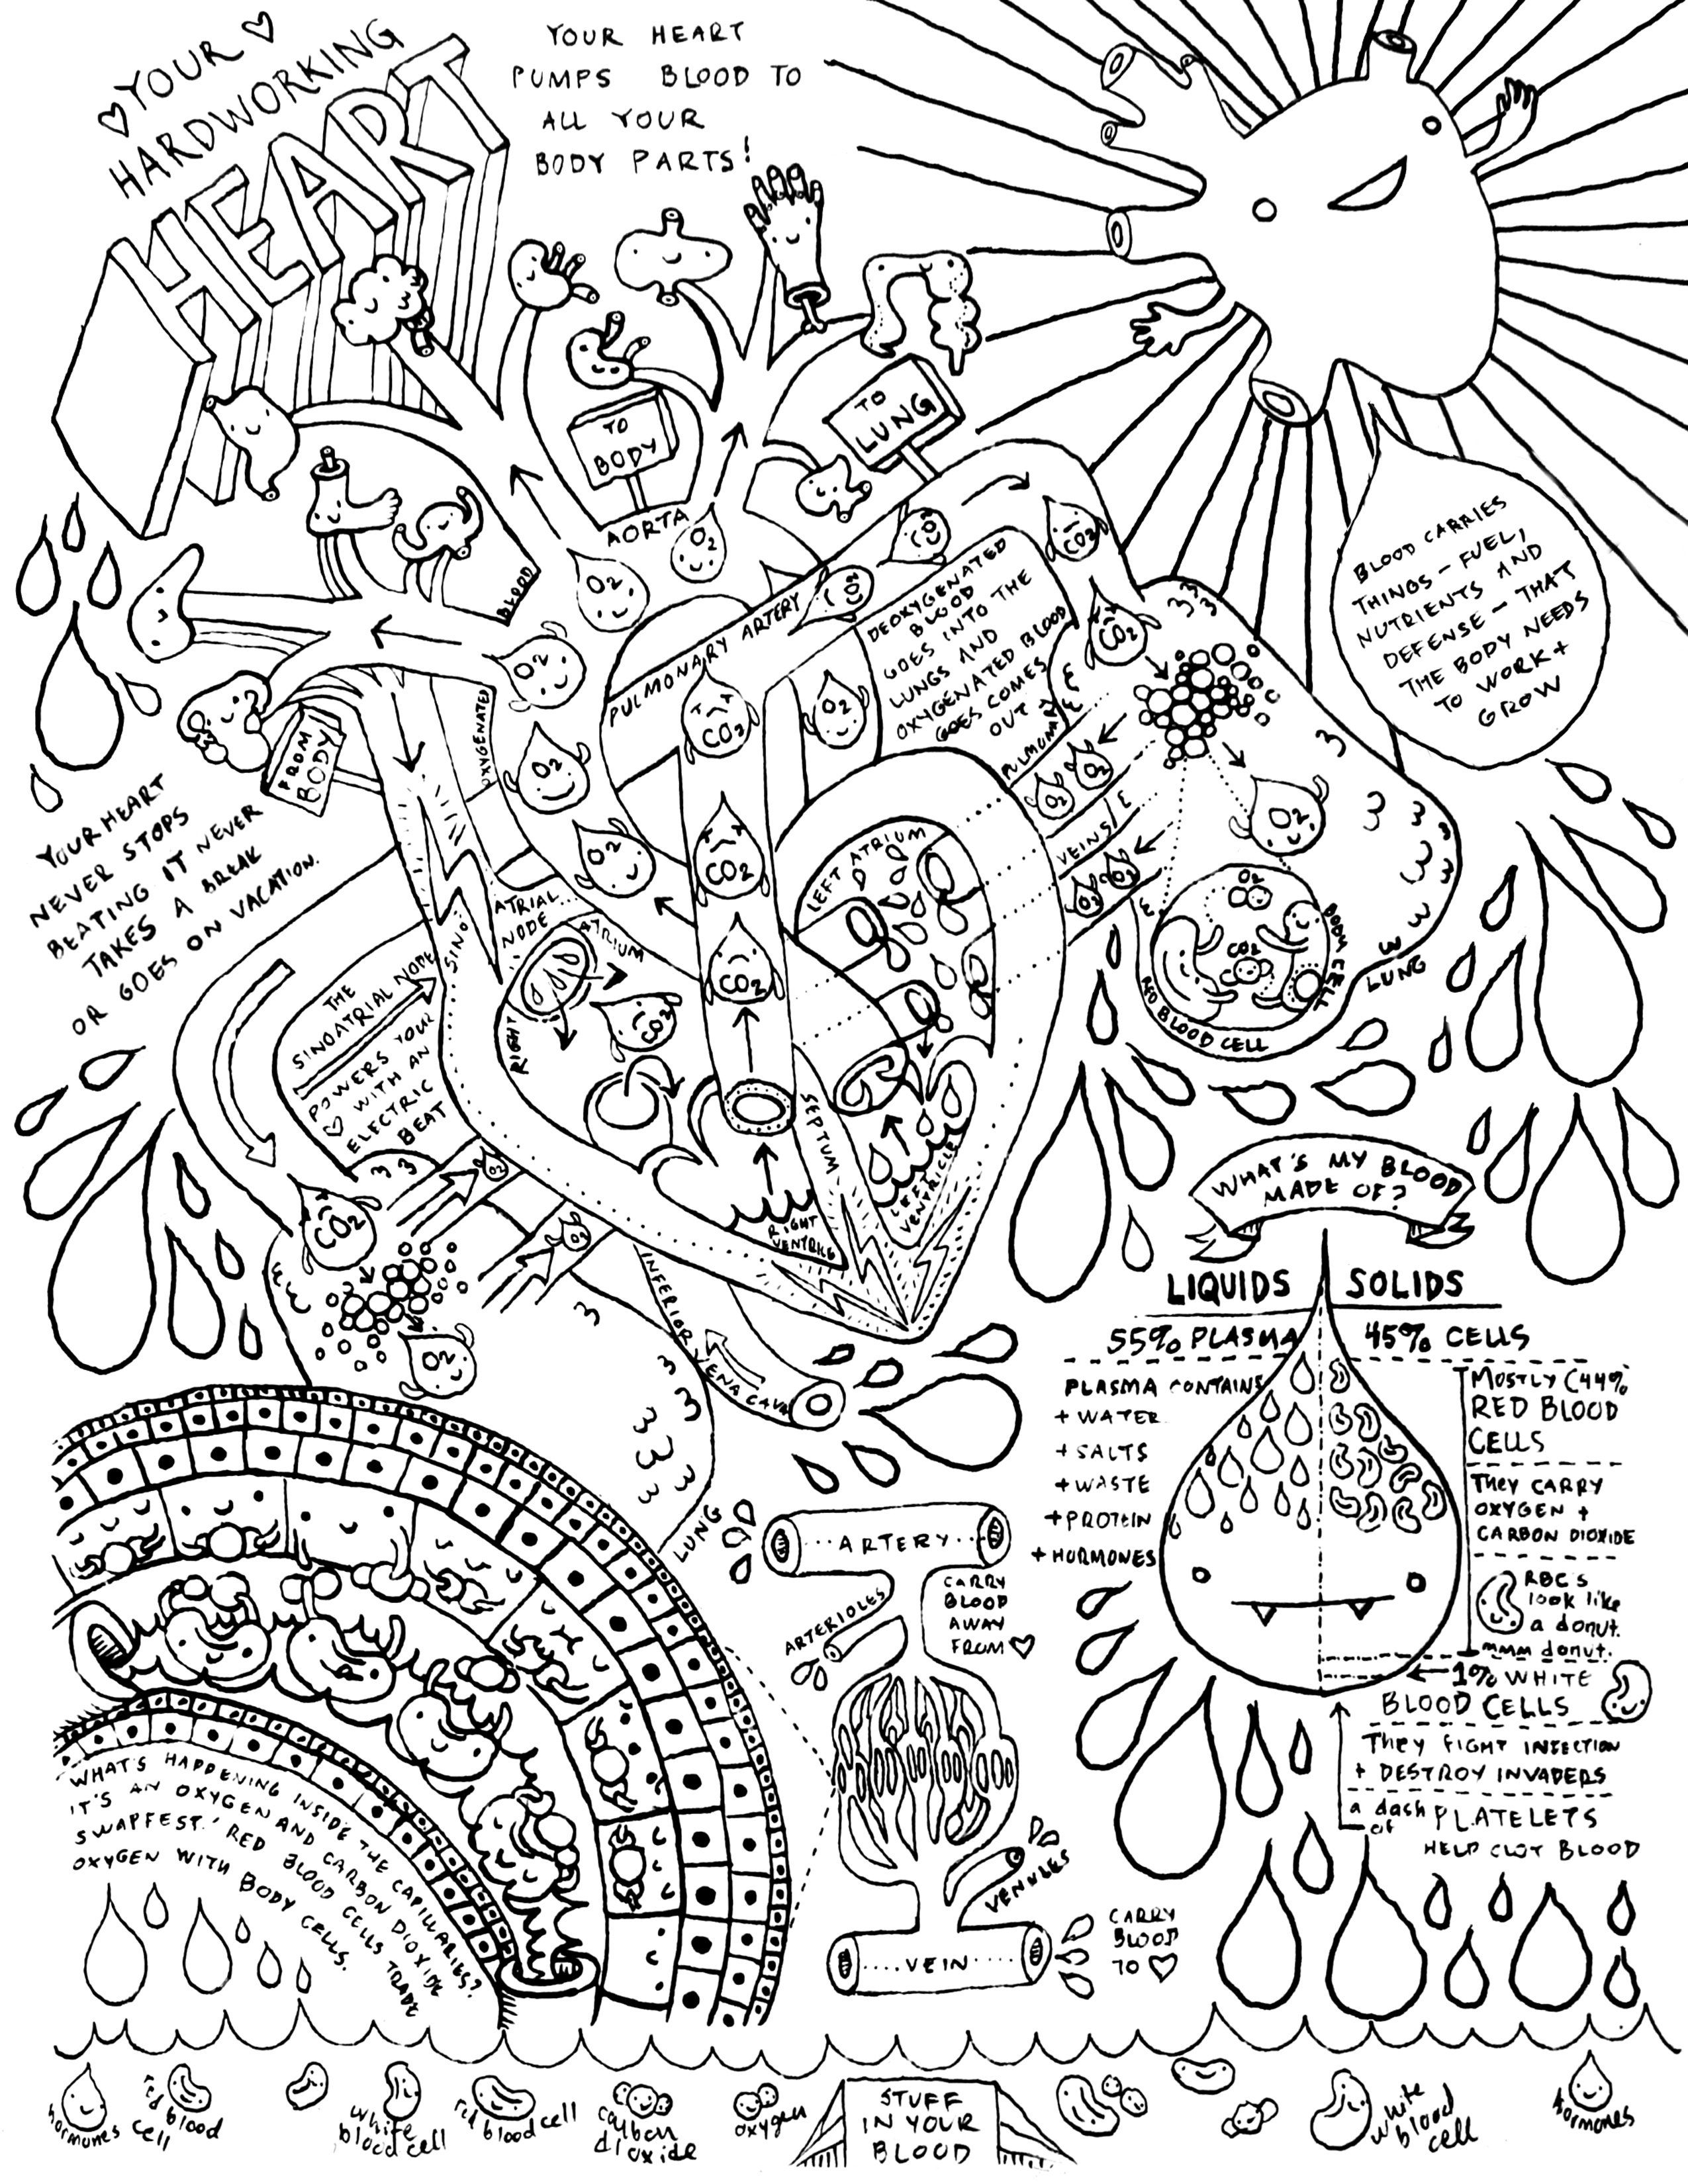 YOUR
HARDWORKING
HEART
YOUR HEART
PUMPS BLOOD TO
ALL YOUR
BODY PARTS!
TO
BODY
TO
LUNG
AORTA
O2
O2
CO2
CO2
BLOOD CARRIES
THINGS - FUEL,
NUTRIENTS AND
DEFENSE - THAT
THE BODY NEEDS
TO WORK +
GROW
OXYGENATED
BLOOD
O2
O2
O2
PULMONARY ARTERY
CO2
CO2
O2
DEOXYGENATED
BLOOD
GOES INTO THE
LUNGS AND
OXYGENATED BLOOD
GOES COMES
OUT
CO2
FROM
BODY
YOUR HEART
NEVER STOPS
BEATING IT NEVER
TAKES A BREAK
OR GOES ON VACATION.
VEINS
O2
O2
O2
O2
O2
CO2
CO2
SINO
ATRIAL
NODE
RIGHT
ATRIUM
CO2
LEFT ATRIUM
O2
CO2
RED BLOOD CELL
LUNG
THE
SINOATRIAL NODE
POWERS YOUR
♡ WITH AN
ELECTRIC
BEAT
SEPTUM
RIGHT
VENTRICLE
LEFT
VENTRICLE
CO2
O2
O2
O2
INFERIOR VENA CAVA
LUNG
WHAT'S MY BLOOD
MADE OF?
LIQUIDS SOLIDS
55% PLASMA
45% CELLS
PLASMA CONTAINS
+ WATER
+ SALTS
+ WASTE
+ PROTEIN
+ HORMONES
MOSTLY (44%
RED BLOOD
CELLS
They CARRY
OXYGEN +
CARBON DIOXIDE
RBC's
look like
a donut.
mmm donut.
1% WHITE
BLOOD CELLS
They FIGHT INFECTION
+ DESTROY INVADERS
a dash
of PLATELETS
HELP CLOT BLOOD
ARTERY
ARTERIOLES
CARRY
BLOOD
AWAY
FROM ♡
VENULES
VEIN
CARRY
BLOOD
TO ♡
WHAT'S HAPPENING INSIDE THE CAPILLARIES?
IT'S AN OXYGEN AND CARBON DIOXIDE
SWAPFEST! RED BLOOD CELLS TRADE
OXYGEN WITH BODY CELLS.
hormones
red blood
cell
white
blood cell
red blood cell
carbon
dioxide
oxygen
STUFF
IN YOUR
BLOOD
white
blood
cell
hormones